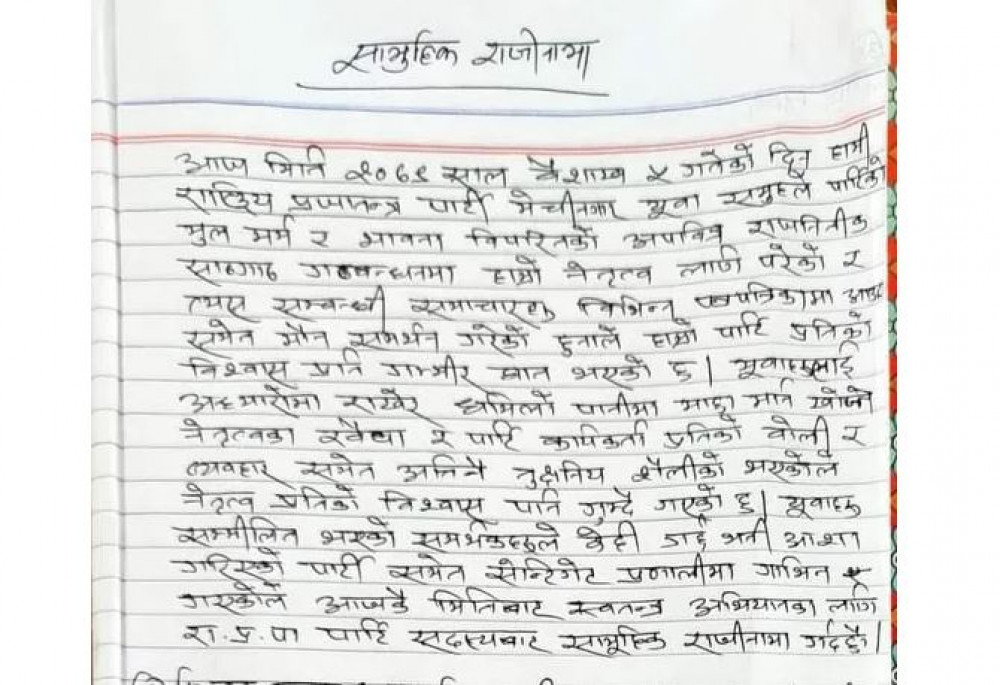 सामुहिक राजीनामा
आज मिति २०७९ साल बैशाख ५ गतेको दिन हामी
राष्ट्रिय प्रजातन्त्र पार्टी मेचीनगर यूवा समुहले पार्टिको
मुल मर्म र भावना विपरितको अपवित्र राजनितीक
साठगाठ गठबन्धनमा हाम्रो नेतृत्व लागि परेको र
त्यस सम्बन्धी समाचारहरु विभिन्न पत्रपत्रिकामा आउदा
समेत मौन समर्थन गरेको हुनाले हाम्रो पार्टि प्रतिको
विश्वास प्रति गाम्भीर घात भएको छ। यूवाहरुलाई
अध्यारोमा राखेर धमिलो पानीमा माछा मार्न खोज्ने
नेतृत्वका रवैया र पार्टि कार्यकर्ता प्रतिको बोली र
व्यवहार समेत अनितै त्रुक्षनिय शैलीको भएकोले
नेतृत्व प्रतिको विश्वास पनि गुम्दै गएको छ। यूवाहरु
सम्मीलित भएको समर्थकहरुले केही गर्छ भनी आशा
गरिएको पार्टी समेत सेन्टिगेट प्रणालीमा गाभिन
गएकोले आजकै मितिबाट स्वतन्त्र अभियानका लागि
रा.प्र.पा पार्टि सदस्यबाट सामूहिक राजीनामा गर्दछौ।